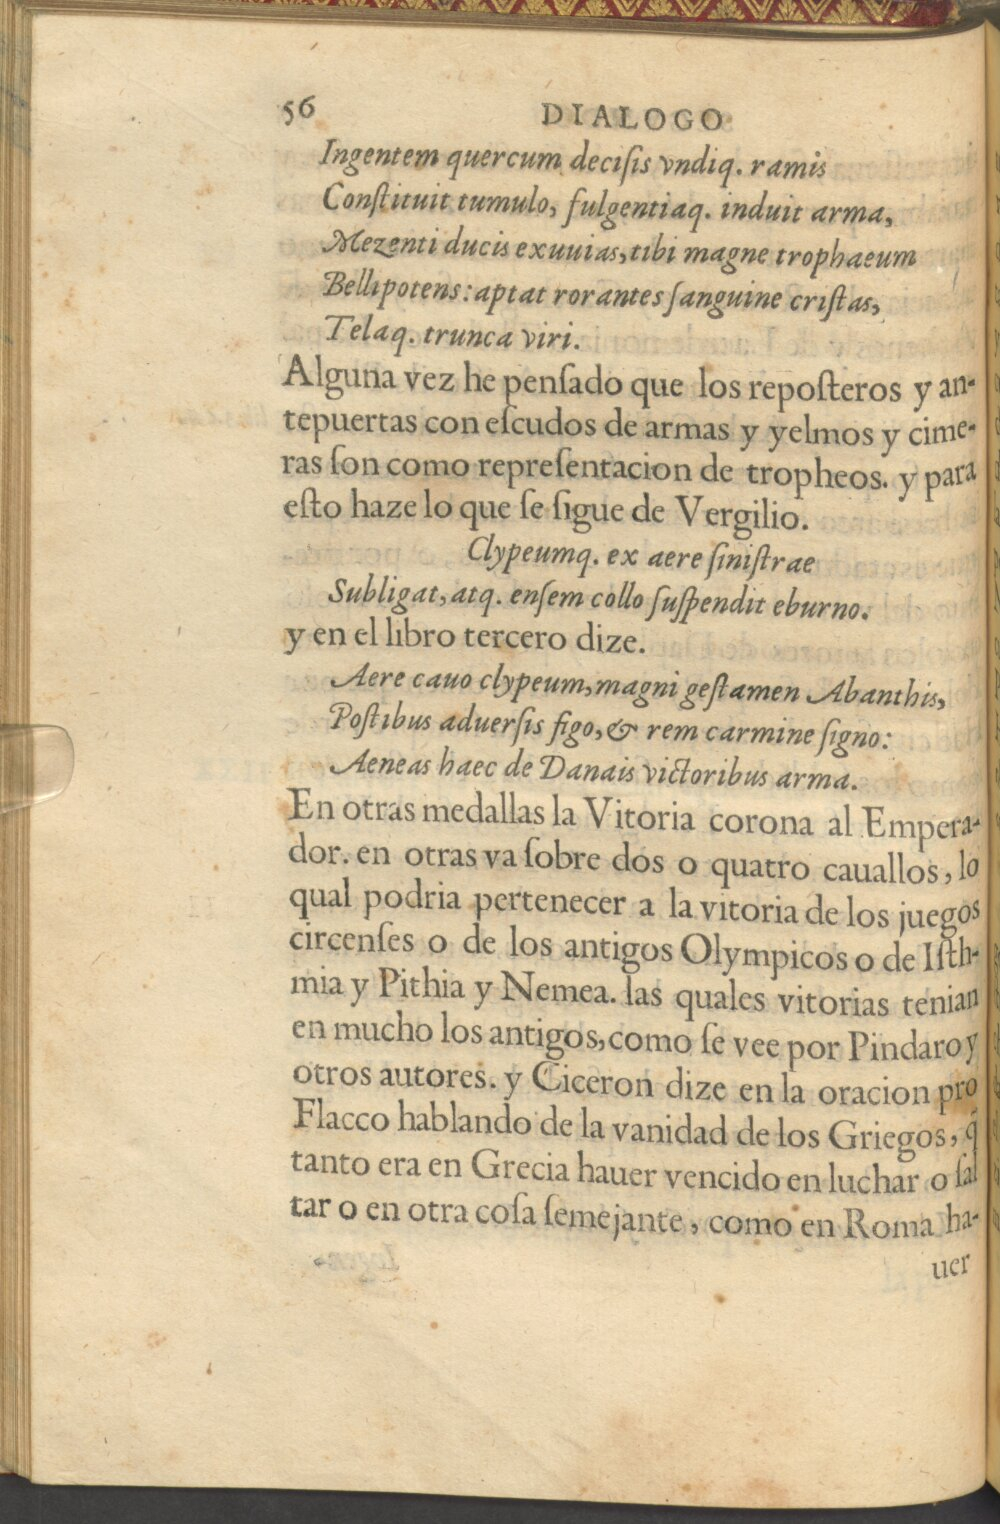 56 DIALOGO
Ingentem quercum decisis vndiq. ramis
Constituit tumulo, fulgentiaq. induit arma,
Mezenti ducis exuuias, tibi magne trophaeum
Bellipotens: aptat rorantes sanguine cristas,
Telaq. trunca viri.
Alguna vez he pensado que los reposteros y an-
tepuertas con escudos de armas y yelmos y cime-
ras son como representacion de tropheos. y para
esto haze lo que se sigue de Vergilio.
Clypeumq. ex aere sinistrae
Subligat, atq. ensem collo suspendit eburno.
y en el libro tercero dize.
Aere cauo clypeum, magni gestamen Abanthis,
Postibus aduersis figo, & rem carmine signo:
Aeneas haec de Danais victoribus arma.
En otras medallas la Vitoria corona al Empera-
dor. en otras va sobre dos o quatro cauallos, lo
qual podria pertenecer a la vitoria de los juegos
circenses o de los antigos Olympicos o de Isth-
mia y Pithia y Nemea. las quales vitorias tenian
en mucho los antigos, como se vee por Pindaro y
otros autores. y Ciceron dize en la oracion pro
Flacco hablando de la vanidad de los Griegos, q̃
tanto era en Grecia hauer vencido en luchar o sal
tar o en otra cosa semejante, como en Roma ha-
uer